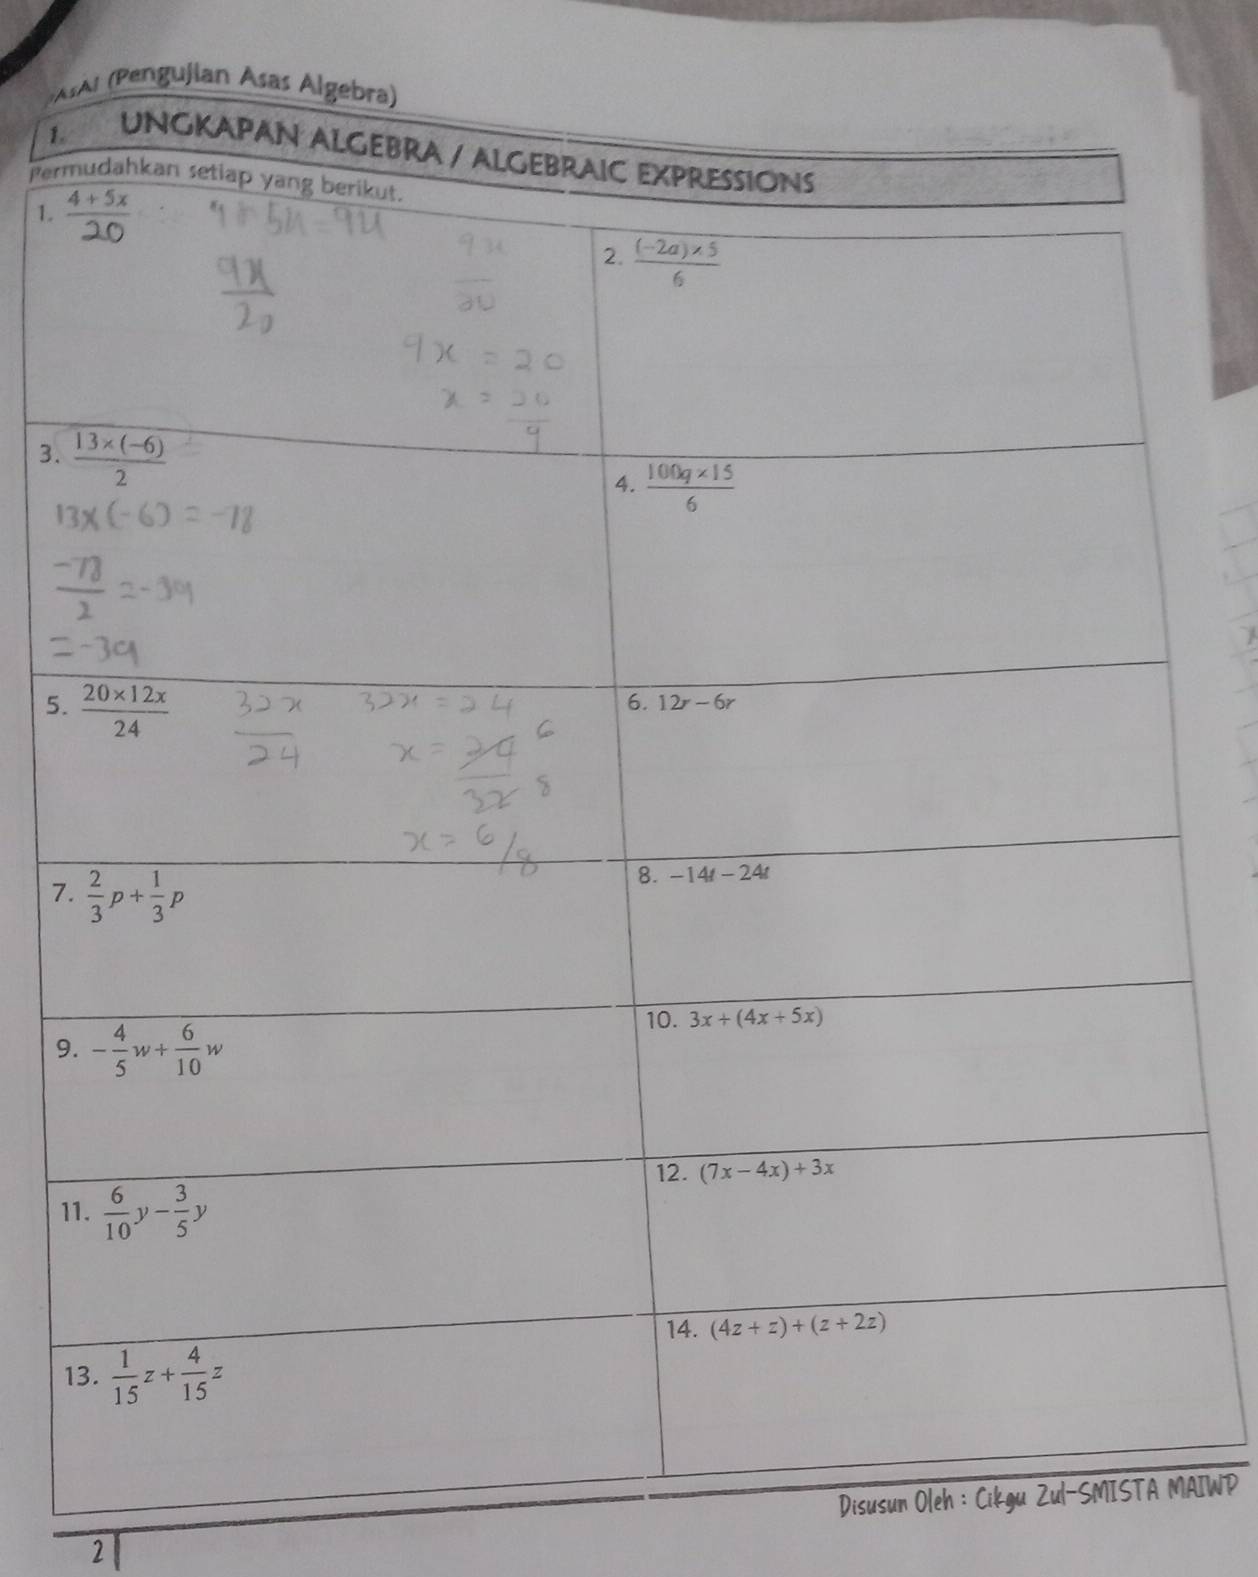 AsAl (Pengujian Asas Algebra)
1. UNGKAPAN ALGEBRA / ALGEBRAIC EXPRESSIONS
Permudahkan setiap yang berikut.
1. (4 + 5x)/20
4 + 5x = 9x
9x/20
9x/20
9x = 20
x = 20/9
2. ((−2a) × 5)/6
3. (13 × (−6))/2
13 × (-6) = -78
-78/2 = -39
= -39
4. (100q × 15)/6
5. (20 × 12x)/24
32x/24
32x = 24
x = 24/32 6 8
x = 6/8
6. 12r − 6r
7. 2/3 p + 1/3 p
8. −14t − 24t
9. −4/5 w + 6/10 w
10. 3x + (4x + 5x)
11. 6/10 y − 3/5 y
12. (7x − 4x) + 3x
13. 1/15 z + 4/15 z
14. (4z + z) + (z + 2z)
Disusun Oleh : Cikgu Zul-SMISTA MAIWP
2